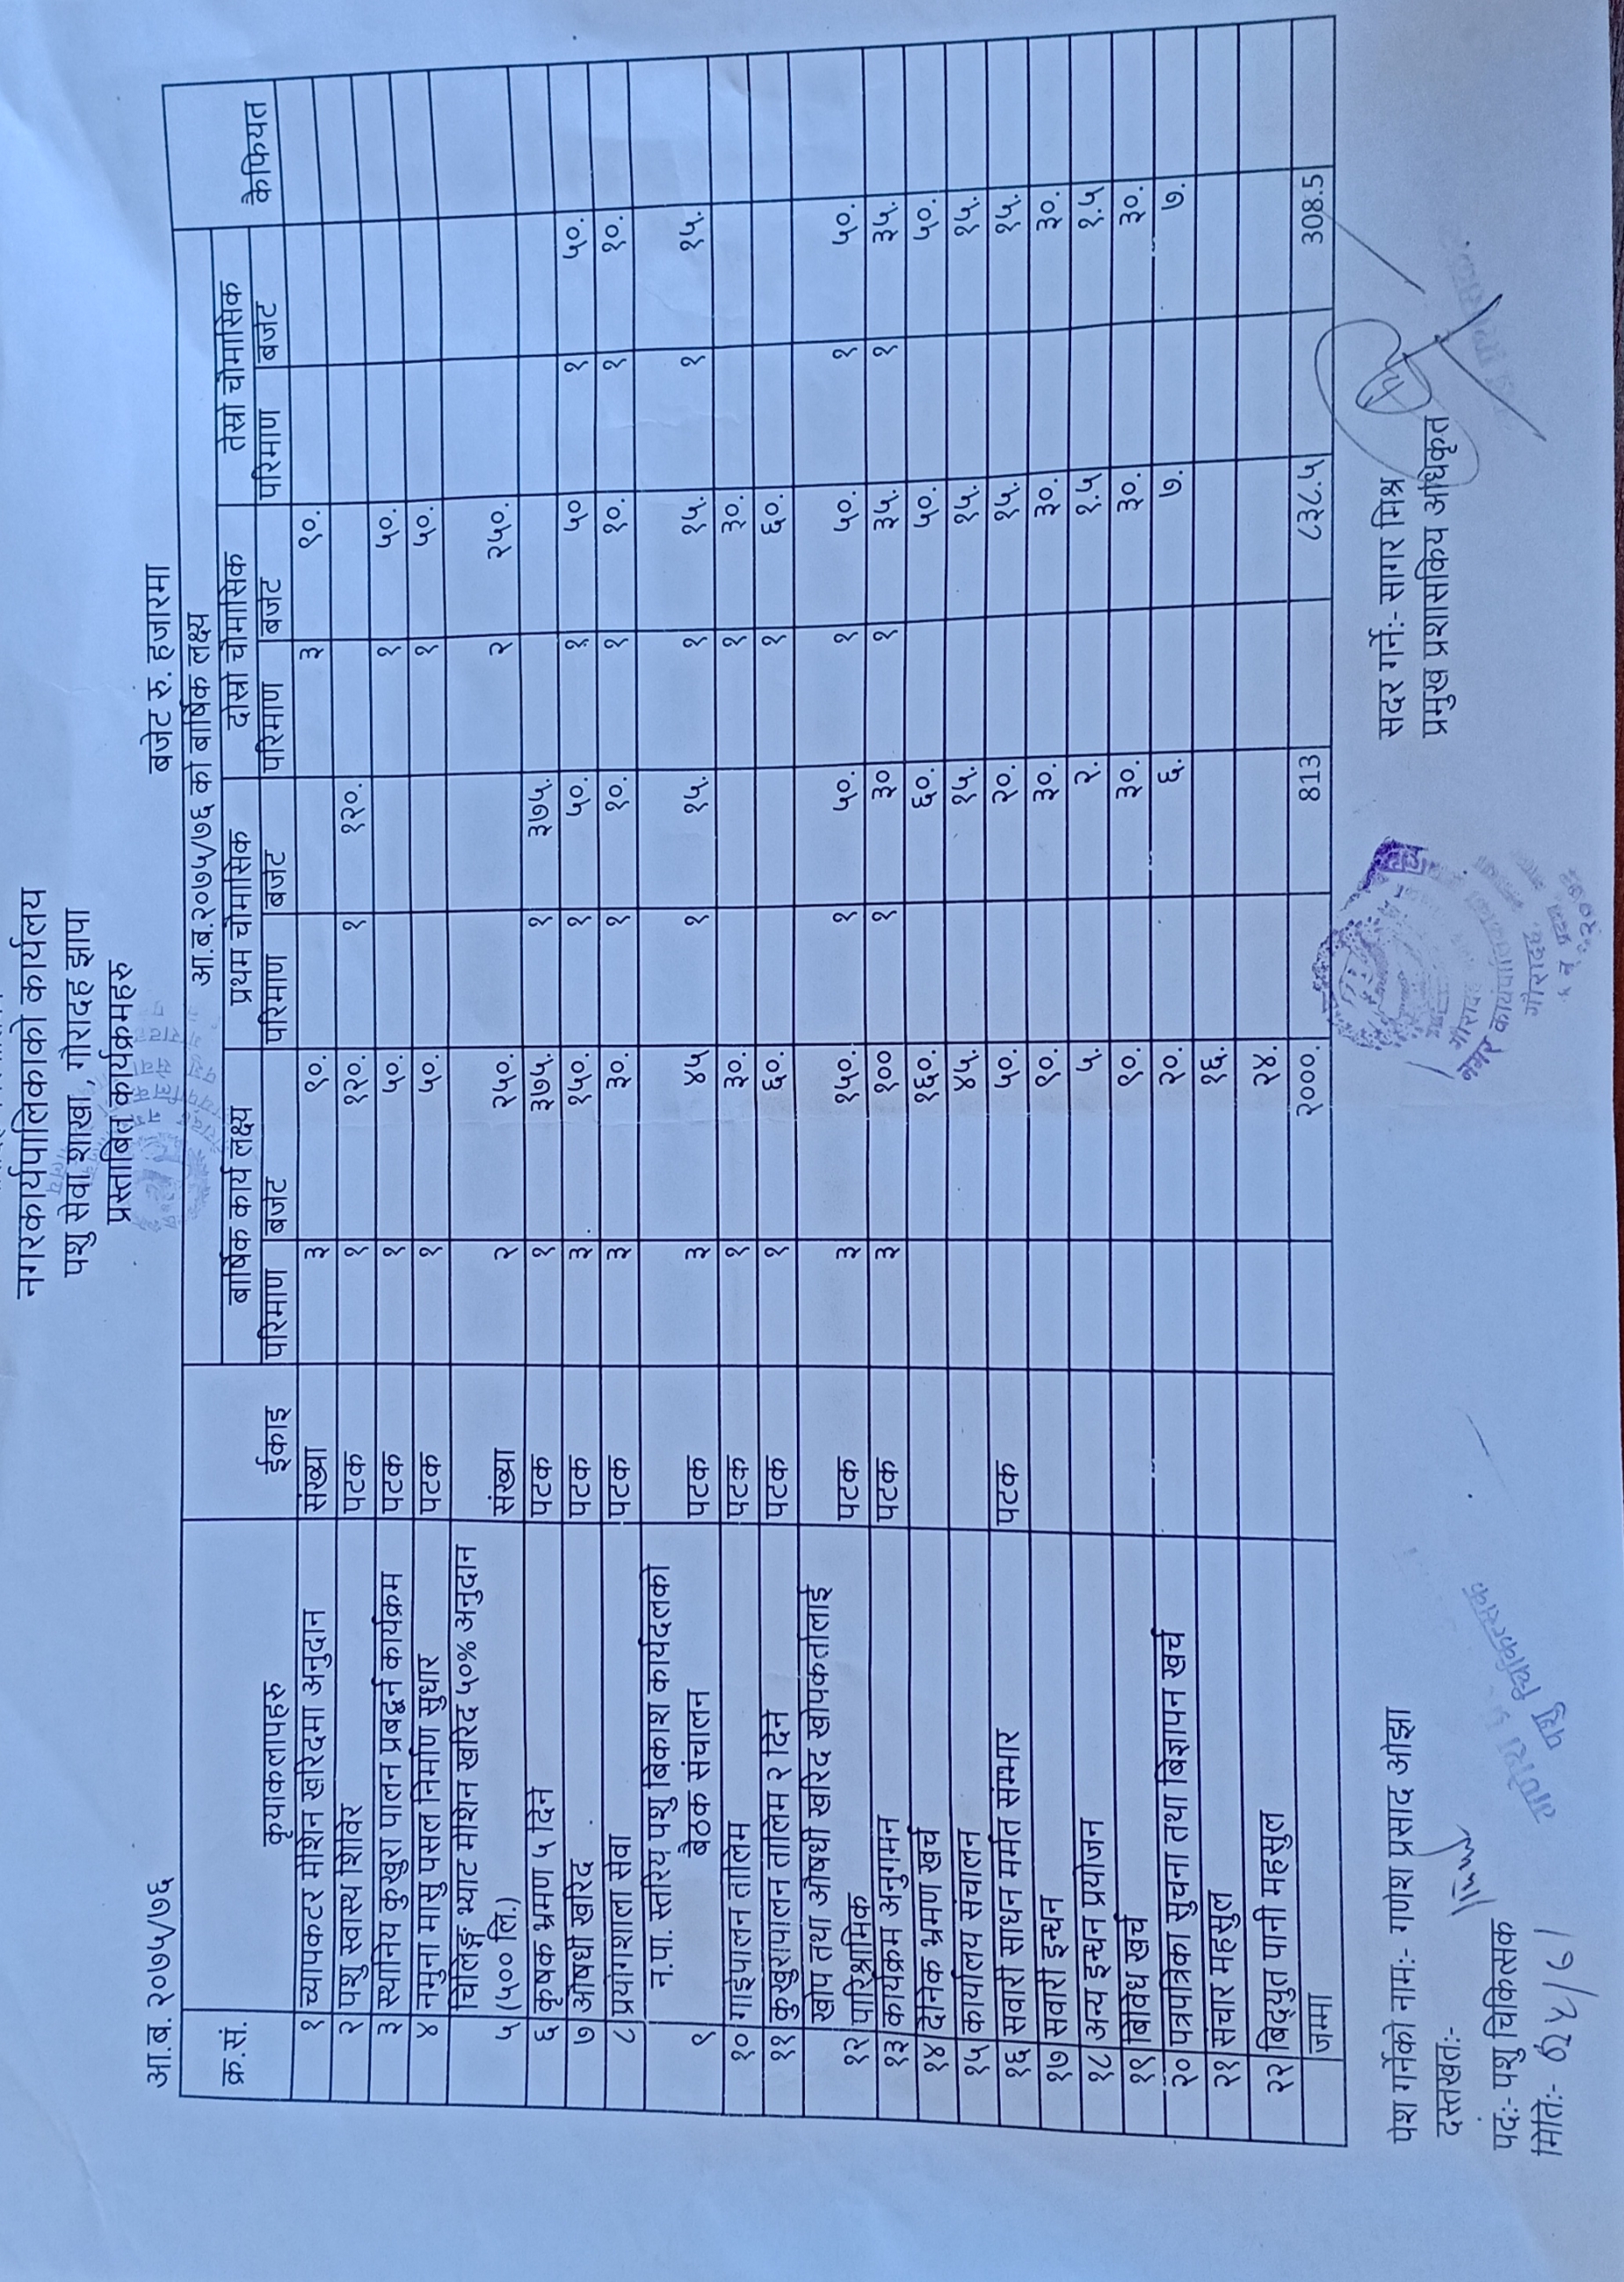 नगरकार्यपालिकाको कार्यलय
पशु सेवा शाखा , गौरादह झापा
प्रस्ताबित कार्यक्रमहरु
आ.ब. २०७५/७६ बजेट रु. हजारमा
क्र.सं. कृयाकलापहरु ईकाइ आ.ब.२०७५/७६ को बार्षिक लक्ष्य कैफियत
बार्षिक कार्य लक्ष्य प्रथम चौमासिक दोस्रो चौमासिक तेस्रो चौमासिक
परिमाण बजेट परिमाण बजेट परिमाण बजेट परिमाण बजेट
१ च्यापकटर मेशिन खरिदमा अनुदान संख्या ३ ९०. ३ ९०.
२ पशु स्वास्थ शिविर पटक १ १२०. १ १२०.
३ स्थानिय कुखुरा पालन प्रबर्द्धन कार्यक्रम पटक १ ५०. १ ५०.
४ नमुना मासु पसल निर्माण सुधार पटक १ ५०. १ ५०.
चिलिङ्ग भ्याट मेशिन खरिद ५०% अनुदान
५ (५०० लि.) संख्या २ २५०. २ २५०.
६ कृषक भ्रमण ५ दिने पटक १ ३७५. १ ३७५.
७ औषधी खरिद पटक ३. १५०. १ ५०. १ ५० १ ५०.
८ प्रयोगशाला सेवा पटक ३ ३०. १ १०. १ १०. १ १०.
न.पा. स्तरिय पशु बिकाश कार्यदलको
९ बैठक संचालन पटक ३ ४५ १ १५. १ १५. १ १५.
१० गाईपालन तालिम पटक १ ३०. १ ३०.
११ कुखुरापालन तालिम २ दिने पटक १ ६०. १ ६०.
खोप तथा औषधी खरिद खोपकर्तालाई
१२ पारिश्रामिक पटक ३ १५०. १ ५०. १ ५०. १ ५०.
१३ कार्यक्रम अनुगमन पटक ३ १०० १ ३० १ ३५. १ ३५.
१४ दैनिक भ्रमण खर्च १६०. ६०. ५०. ५०.
१५ कार्यालय संचालन ४५. १५. १५. १५.
१६ सवारी साधन मर्मत संम्भार पटक ५०. २०. १५. १५.
१७ सवारी इन्धन ९०. ३०. ३०. ३०.
१८ अन्य इन्धन प्रयोजन ५. २. १.५ १.५
१९ बिविध खर्च ९०. ३०. ३०. ३०.
२० पत्रपत्रिका सुचना तथा बिज्ञापन खर्च २०. ६. ७. ७.
२१ संचार महसुल १६.
२२ बिद्युत पानी महसुल २४.
जम्मा २०००. 813 ८३८.५ 308.5
पेश गर्नेको नामः- गणेश प्रसाद ओझा सदर गर्नेः- सागर मिश्र
दस्तखतः- प्रमुख प्रशासकिय अधिकृत
पदः- पशु चिकित्सक
मितिः-
पशु चिकित्सक
नगर कार्यपालिकाको
गौरादह